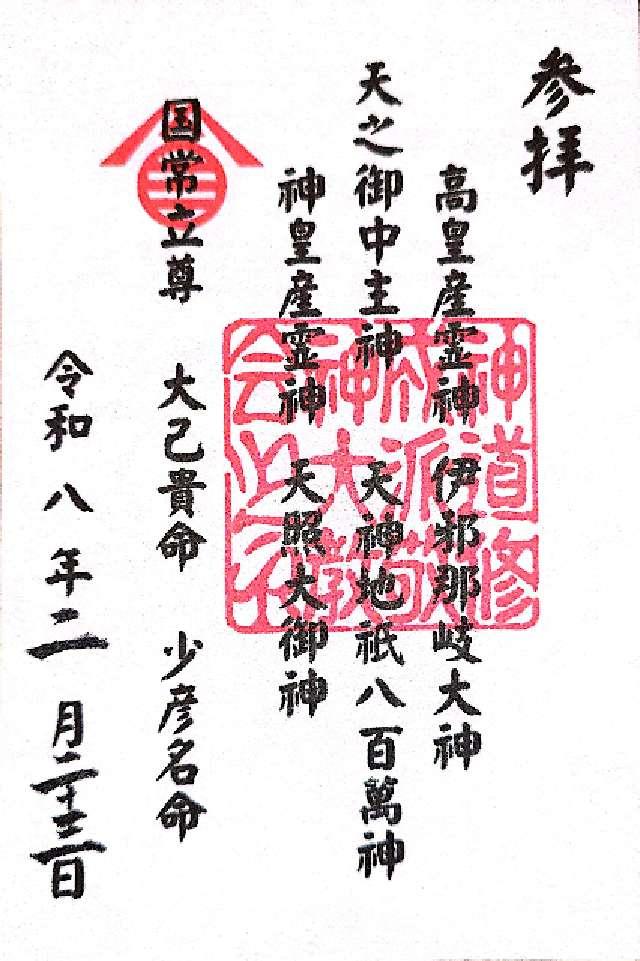 参拝
高皇産霊神 伊邪那岐大神
天之御中主神 天神地祇八百萬神
神皇産霊神 天照大御神
国常立尊 大己貴命 少彦名命
令和八年二月二十三日
神道修
成派敬
神大教
会之